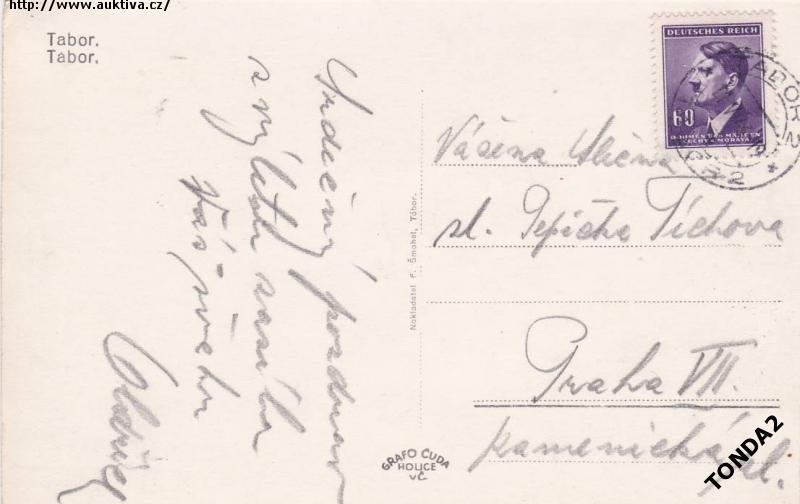 http://www.auktiva.cz/
Tabor.
Tábor.
Srdečný pozdrav
z výletu zasílá
Váš
Oldřich
Nakladatel F. Šmahel, Tábor.
GRAFO ČUDA
HOLICE
v Č.
DEUTSCHES REICH
60
BÖHMEN UND MÄHREN
ČECHY A MORAVA
TÁBOR 2
Vážená slečna
sl. Pepička Tichova
Praha VII.
Kamenická ul.
TONDA2